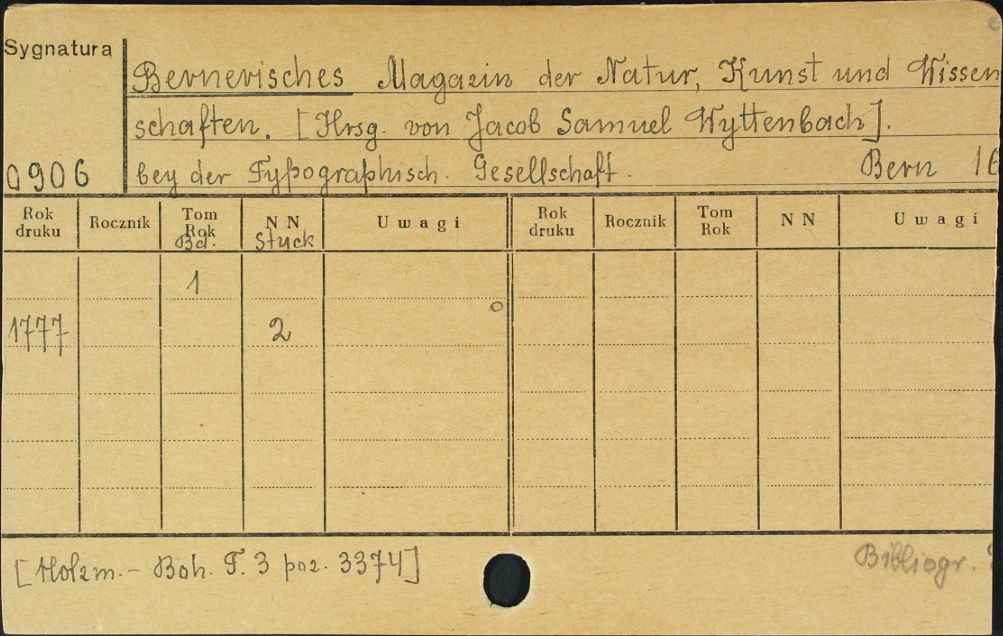 Sygnatura
Bernerisches Magazin der Natur, Kunst und Wissen
schaften. [Hrsg. von Jacob Samuel Wyttenbach].
0906
bey der Typographisch. Gesellschaft. Bern
Rok druku Rocznik Tom Rok Bd. NN Stück Uwagi Rok druku Rocznik Tom Rok NN Uwagi
1
1777 2
[Holzm. - Boh. T. 3 poz. 3374]
Bibliogr.